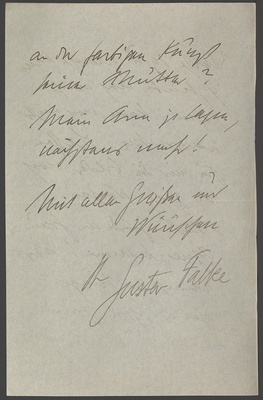 an der farbigen Kunst
seiner Mutter?
Mein Arm ist lahm,
nächstens mehr!
Mit allen Grüßen und
Wünschen
Ihr
Gustav Falke